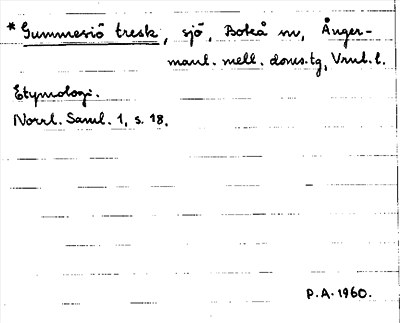 * Gummesiö tresk, sjö, Boteå sn, Ånger-
manl. mell. doms.tg, Vrnl. l.
Etymologi.
Norrl. Saml. 1, s. 18.
P.A. 1960.